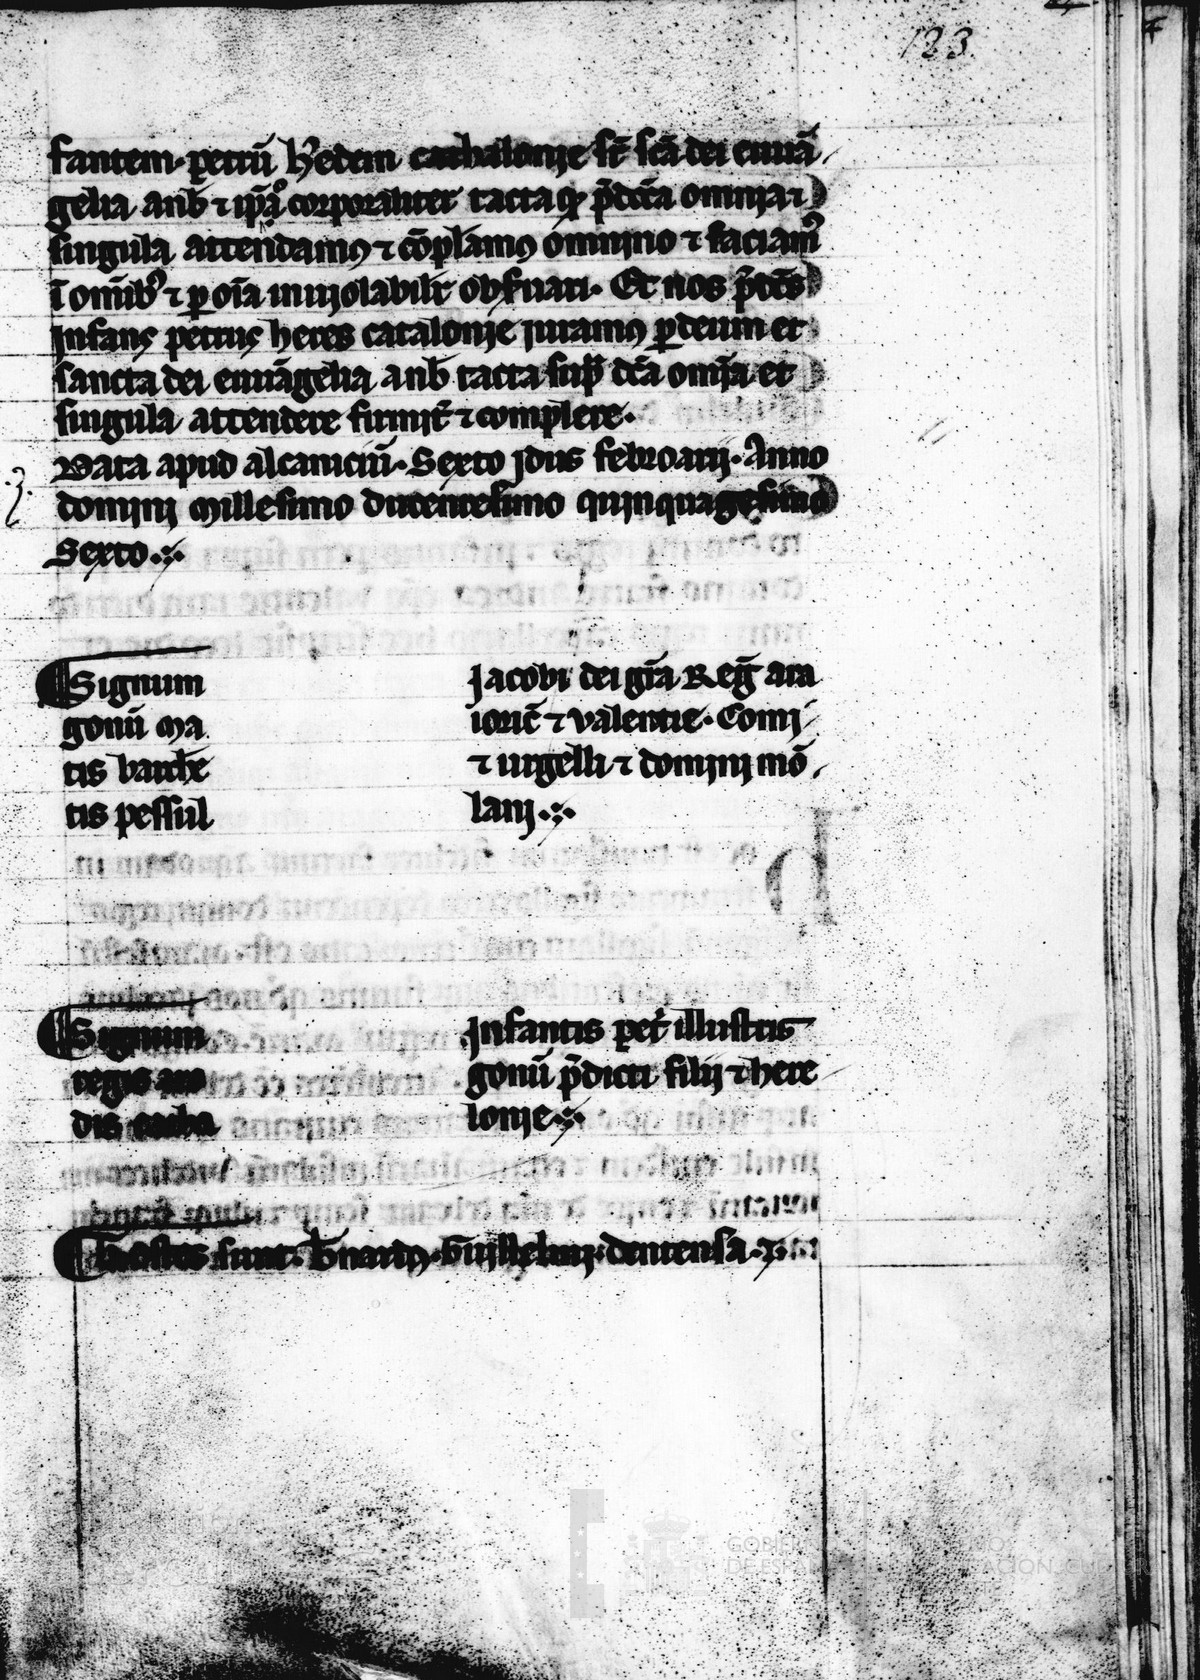 123
fantem petrū h̓edem cathalonie sr̄ scā dei euuā
gelia anb̄ ⁊ ip̄a corporaliter tacta q p̄dcā omnia ⁊
singula attendamꝯ ⁊ cōplamꝯ omnino ⁊ faciam̓
ī omīb̓ ⁊ ꝑ oīa inuiolabilit̄ obẜuari. Et nos p̄dcs̄
Infans petrus heres catalonie iuramꝯ ꝑ deum et
sancta dei euuāgelia anb̄ tacta sup̄ dcā omīa et
singula attendere firmit̄ ⁊ complere.
Data apud alcaniciū. Sexto idus febroarij. Anno
domini Millesimo ducentesimo quinquagesimo
Sexto.
Signum Jacobi dei grā Reḡ ara
gonū Ma ioric̄ ⁊ valentie. Comi
tis barche ⁊ urgelli ⁊ domini mō
tis pessul lani.
Signum Infantis pet̄ illustris
regis ara gonū p̄dicti filij ⁊ here
dis catha lonie
Testes sunt. b̄nardꝯ. Guillelmi. dentensa.